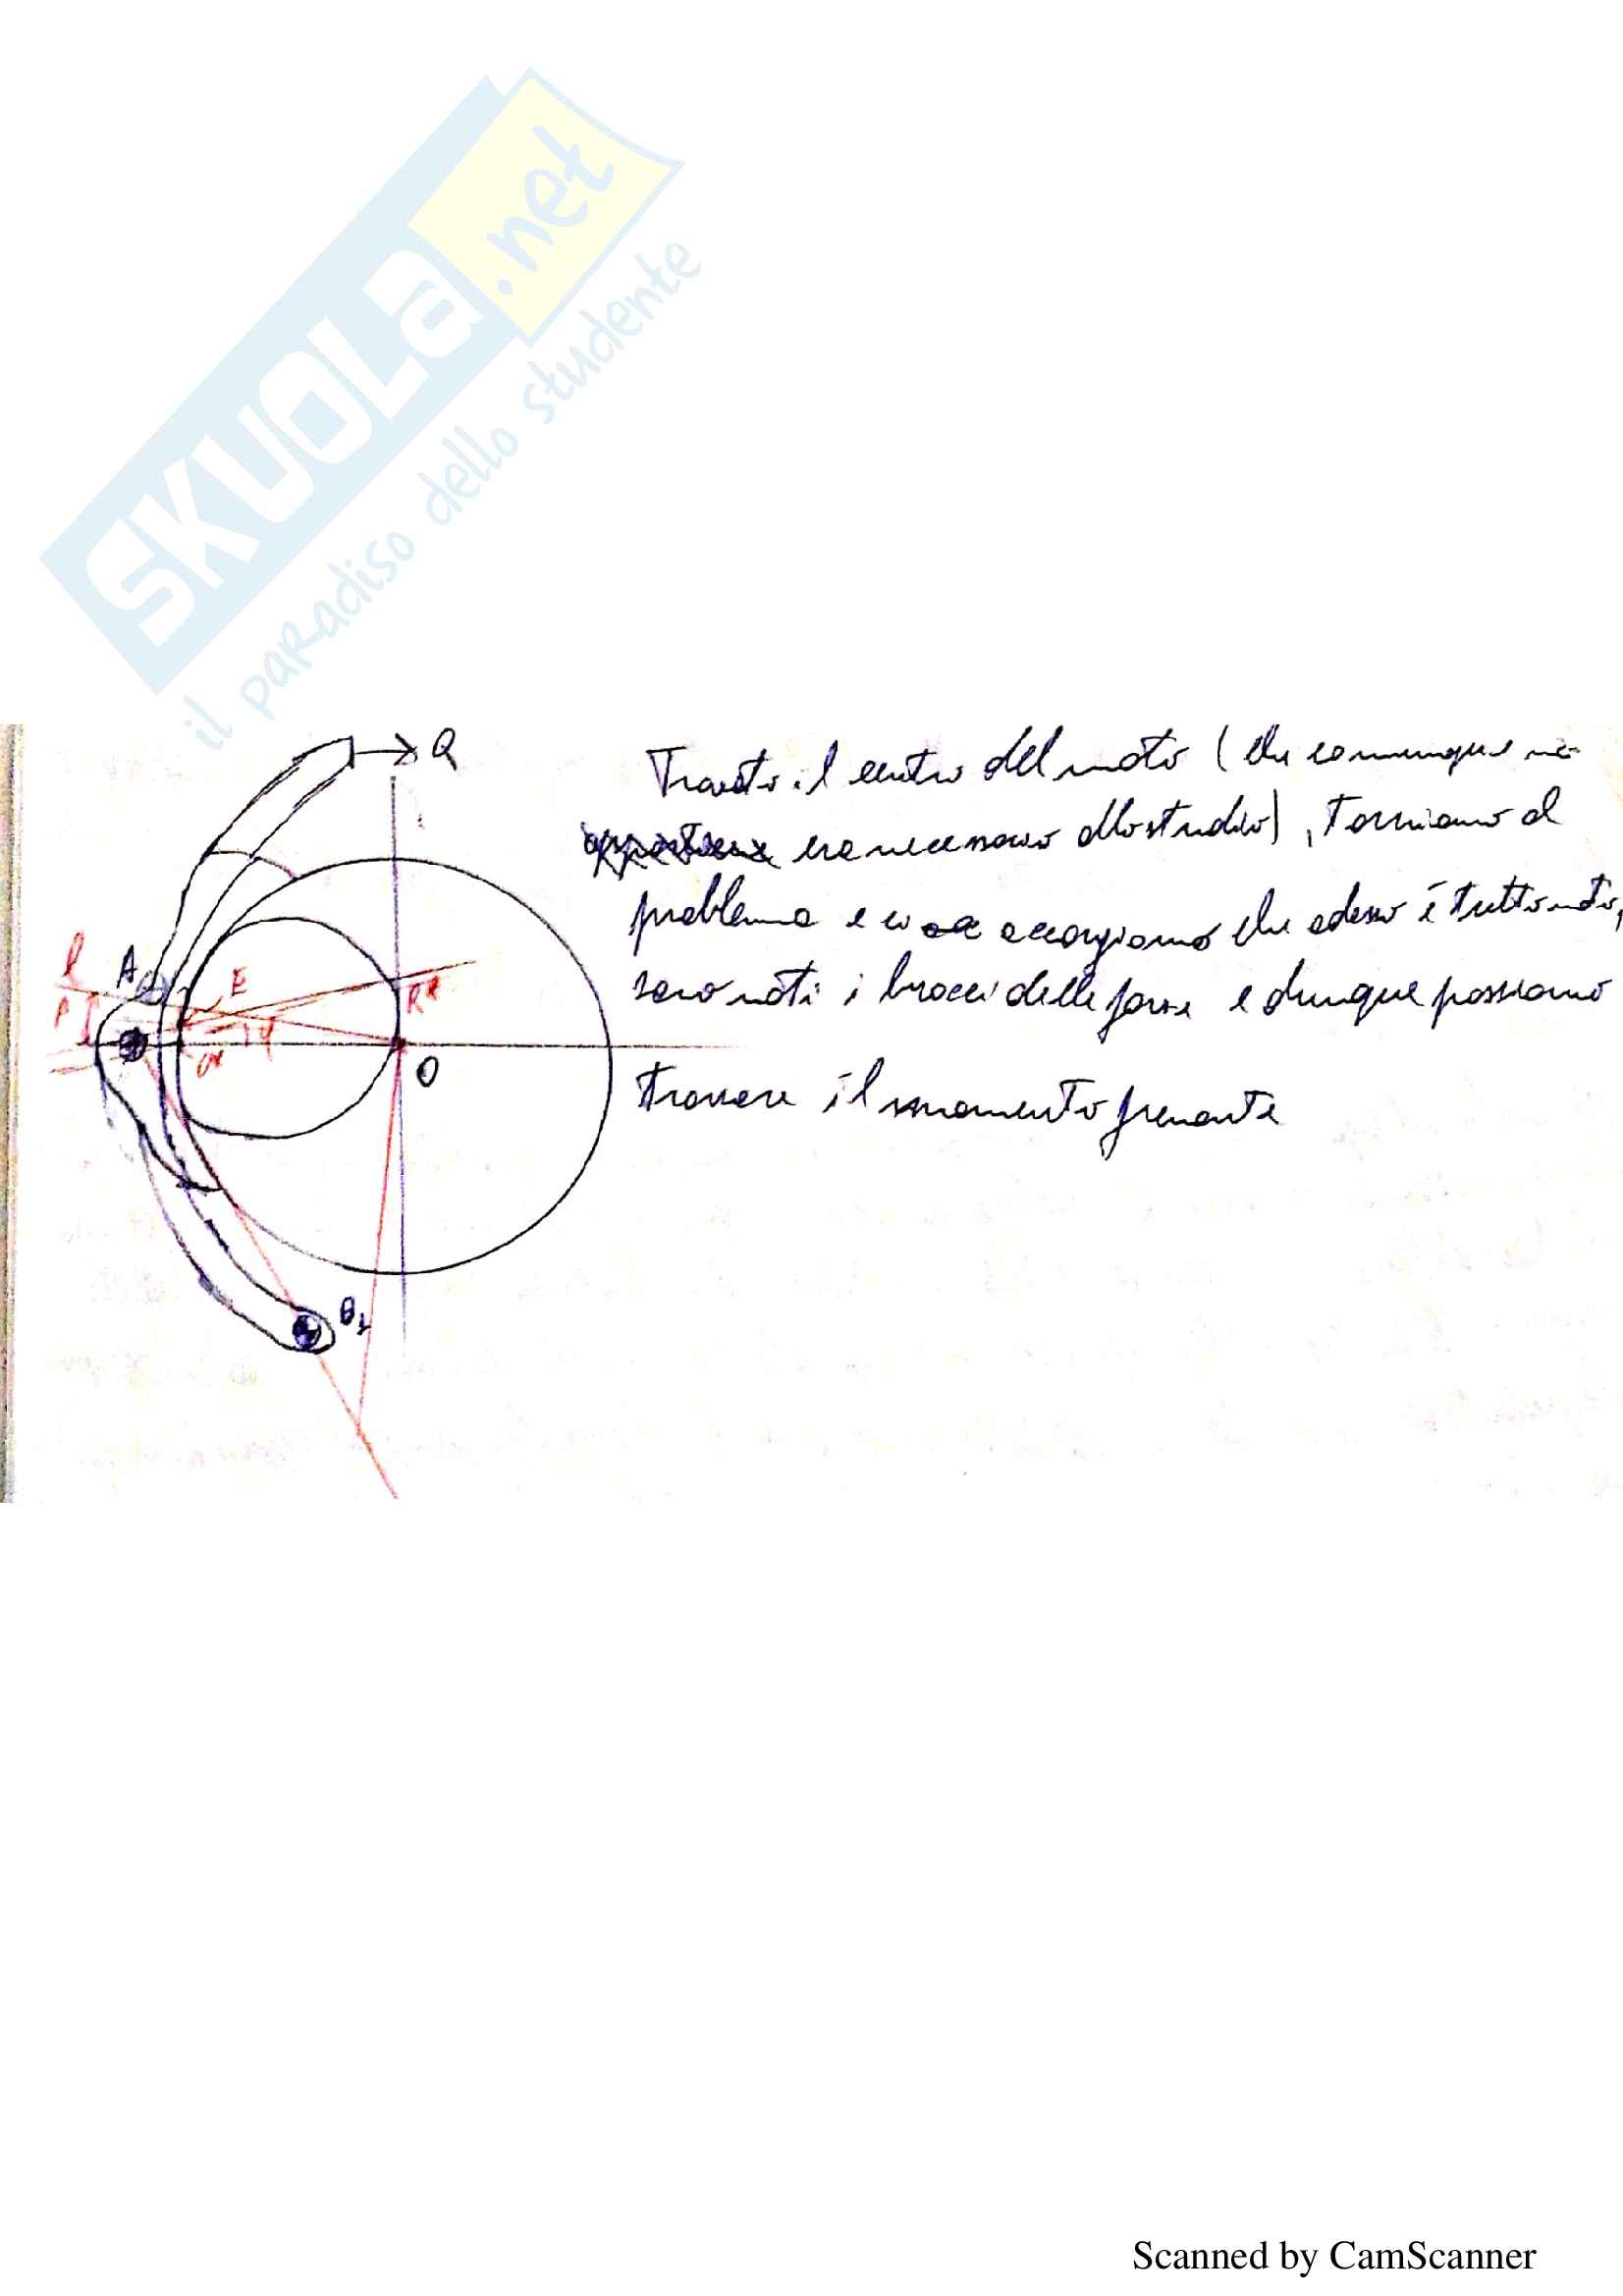 SKUOLA.net
il paradiso dello studente
Q
Trovato il centro del moto (che comunque
era necessario allo studio), torniamo al
problema e ci accorgiamo che adesso è tutto noto,
sono noti i bracci delle forze e dunque possiamo
trovare il momento frenante
l
A
E
R*
ρ
α
φ
O
B₁
Scanned by CamScanner